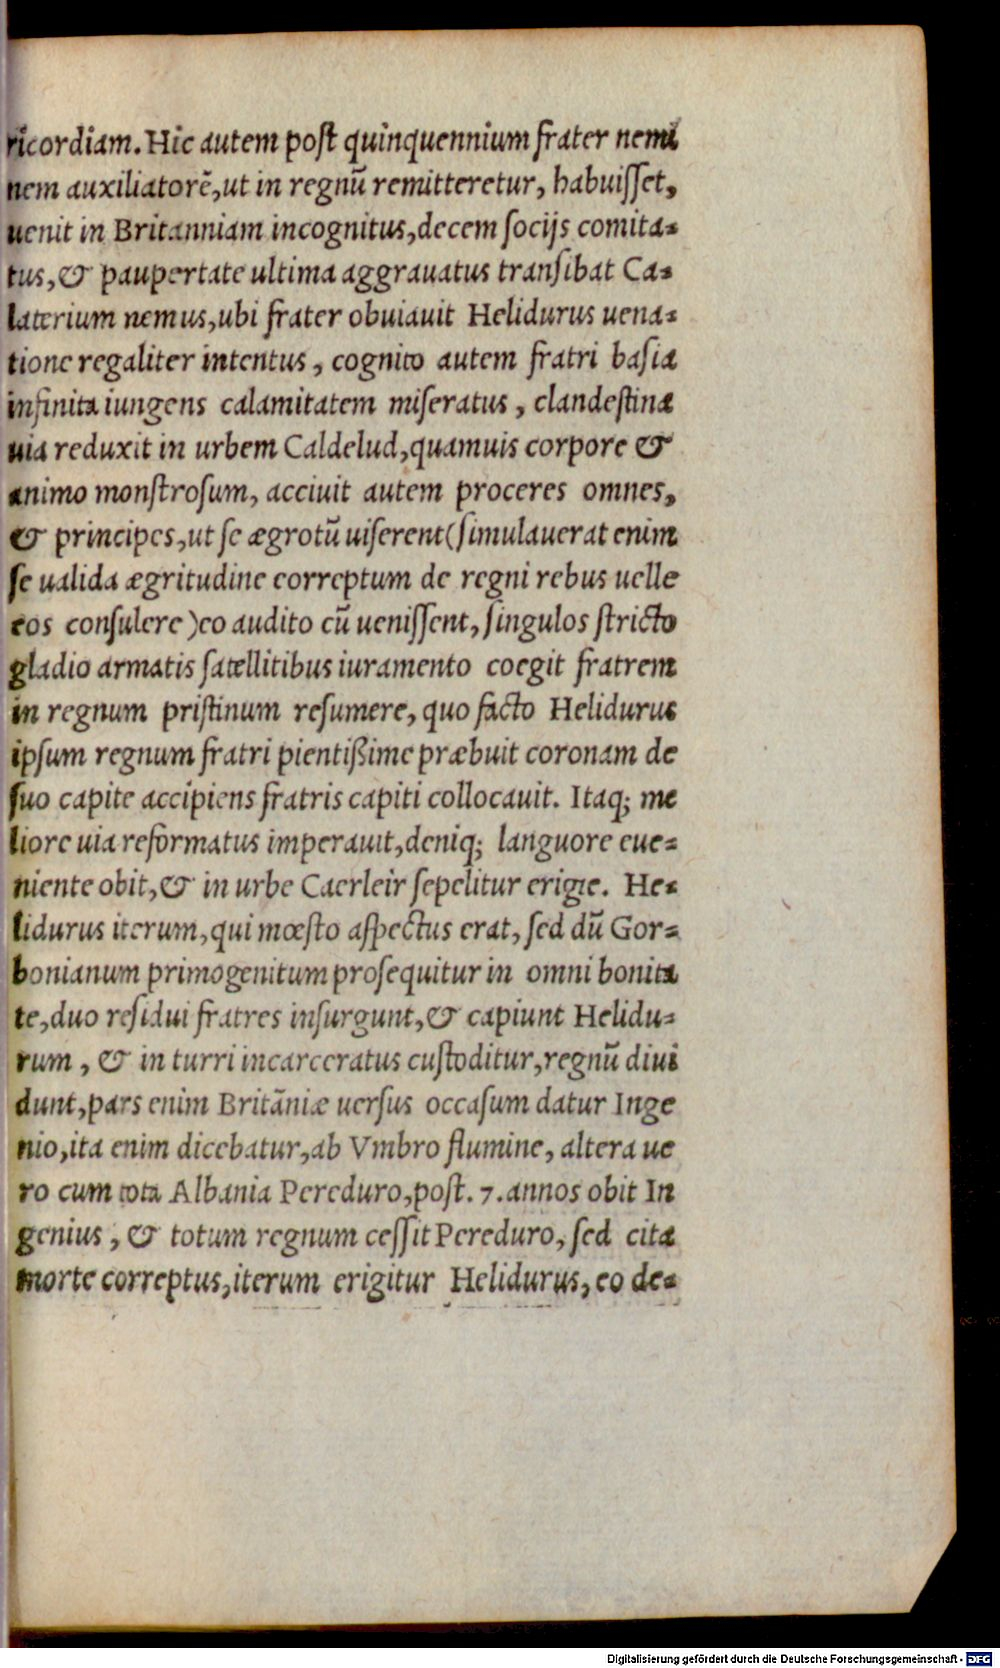 ricordiam. Hic autem post quinquennium frater nemi
nem auxiliatorē, ut in regnū remitteretur, habuisset,
uenit in Britanniam incognitus, decem socijs comita=
tus, & paupertate ultima aggrauatus transibat Ca=
laterium nemus, ubi frater obuiauit Helidurus uena=
tione regaliter intentus, cognito autem fratri basia
infinita iungens calamitatem miseratus, clandestina
uia reduxit in urbem Caldelud, quamuis corpore &
animo monstrosum, acciuit autem proceres omnes,
& principes, ut se ægrotū uiserent (simulauerat enim
se ualida ægritudine correptum de regni rebus uelle
eos consulere) eo audito cū uenissent, singulos stricto
gladio armatis satellitibus iuramento coegit fratrem
in regnum pristinum resumere, quo facto Helidurus
ipsum regnum fratri pientißime præbuit coronam de
suo capite accipiens fratris capiti collocauit. Itaq; me
liore uia reformatus imperauit, deniq; languore eue=
niente obit, & in urbe Caerleir sepelitur erigie. He=
lidurus iterum, qui mœsto aspectus erat, sed dū Gor=
bonianum primogenitum prosequitur in omni bonita
te, duo residui fratres insurgunt, & capiunt Helidu=
rum, & in turri incarceratus custoditur, regnū diui
dunt, pars enim Britāniæ uersus occasum datur Inge
nio, ita enim dicebatur, ab Vmbro flumine, altera ue
ro cum tota Albania Pereduro, post. 7. annos obit In
genius, & totum regnum cessit Pereduro, sed cita
morte correptus, iterum erigitur Helidurus, eo de=
Digitalisierung gefördert durch die Deutsche Forschungsgemeinschaft - DFG